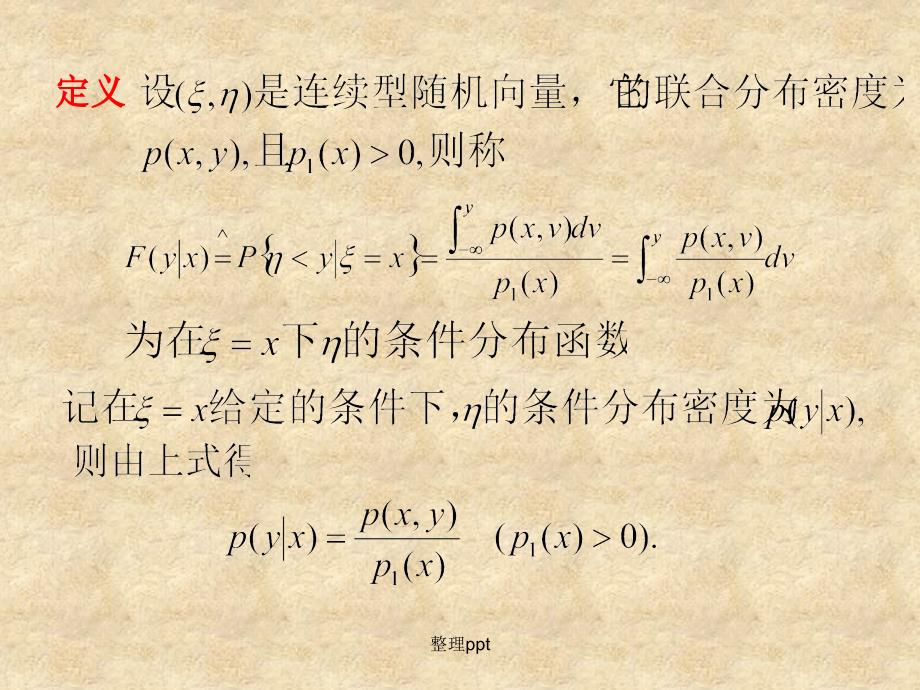 定义 设(ξ,η)是连续型随机向量，它的联合分布密度为
p(x,y),且p₁(x)>0,则称
F(y|x) ≙ P{η<y|ξ=x} = ∫_{-∞}^{y} p(x,v)dv / p₁(x) = ∫_{-∞}^{y} p(x,v)/p₁(x) dv
为在ξ=x下η的条件分布函数
记在ξ=x给定的条件下，η的条件分布密度为p(y|x),
则由上式得
p(y|x) = p(x,y)/p₁(x) (p₁(x)>0).
整理ppt